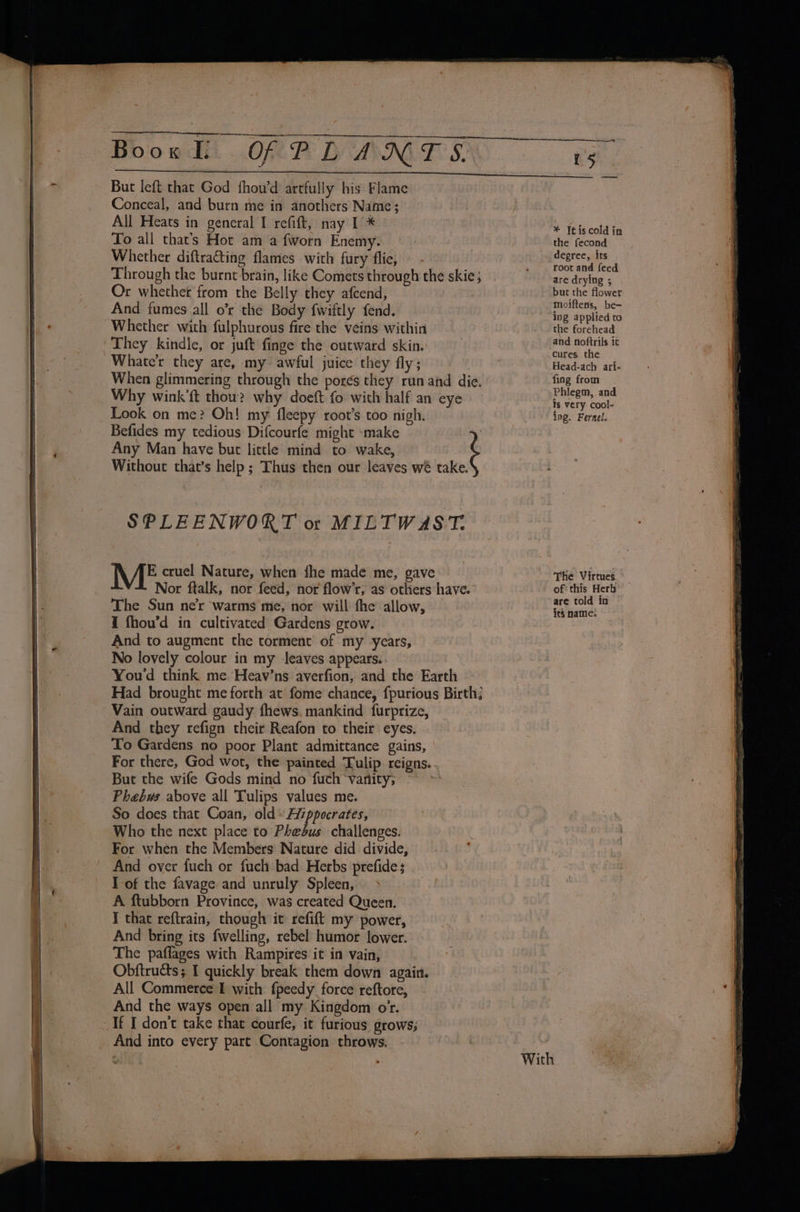 Book I. Of PLANTS. 15
But left that God ſhou'd artfully his Flame
Conceal, and burn me in anothers Name;
All Heats in general I reſiſt, nay I *
To all that's Hot am a ſworn Enemy.
Whether diſtracting flames with fury flie,
Through the burnt brain, like Comets through the skie;
Or whether from the Belly they aſcend,
And fumes all o'r the Body ſwiftly ſend.
Whether with ſulphurous fire the veins within
They kindle, or juſt ſinge the outward skin.
Whate'r they are, my awful juice they fly;
When glimmering through the pores they run and die.
Why wink'ſt thou? why doeſt ſo with half an eye
Look on me? Oh! my ſleepy root's too nigh.
Beſides my tedious Diſcourſe might make
Any Man have but little mind to wake,
Without that's help; Thus then our leaves we take.
* It is cold in
the ſecond
degree, its
root and ſeed
are drying;
but the flower
moiſtens, be-
ing applied to
the forehead
and noſtrils it
cures the
Head-ach ari-
ſing from
Phlegm, and
is very cool-
ing. Fernel.
SPLEENWORT or MILTWAST.
ME cruel Nature, when ſhe made me, gave
Nor ſtalk, nor ſeed, nor flow'r, as others have.
The Sun ne'r warms me, nor will ſhe allow,
I ſhou'd in cultivated Gardens grow.
And to augment the torment of my years,
No lovely colour in my leaves appears.
You'd think me Heav'ns averſion, and the Earth
Had brought me forth at ſome chance, ſpurious Birth;
Vain outward gaudy ſhews mankind ſurprize,
And they reſign their Reaſon to their eyes.
To Gardens no poor Plant admittance gains,
For there, God wot, the painted Tulip reigns.
But the wiſe Gods mind no ſuch vanity,
Phebus above all Tulips values me.
So does that Coan, old Hippocrates,
Who the next place to Phebus challenges.
For when the Members Nature did divide,
And over ſuch or ſuch bad Herbs preſide;
I of the ſavage and unruly Spleen,
A ſtubborn Province, was created Queen.
I that reſtrain, though it reſiſt my power,
And bring its ſwelling, rebel humor lower.
The paſſages with Rampires it in vain,
Obſtructs; I quickly break them down again.
All Commerce I with ſpeedy force reſtore,
And the ways open all my Kingdom o'r.
If I don't take that courſe, it furious grows;
And into every part Contagion throws.
The Virtues
of this Herb
are told in
its name.
With